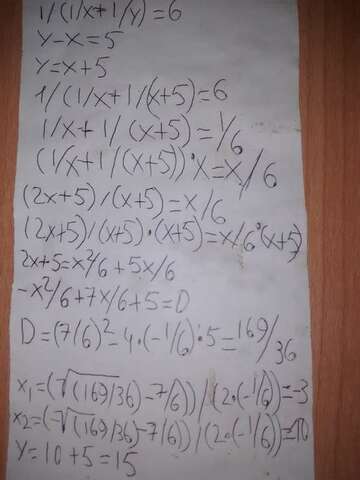 1/(1/x+1/y)=6
y-x=5
y=x+5
1/(1/x+1/(x+5)=6
1/x+1/(x+5)=1/6
(1/x+1/(x+5))·x=x/6
(2x+5)/(x+5)=x/6
(2x+5)/(x+5)·(x+5)=x/6·(x+5)
2x+5=x²/6+5x/6
-x²/6+7x/6+5=0
D=(7/6)²-4·(-1/6)·5=169/36
x₁=(√(169/36)-7/6))/(2·(-1/6))=-3
x₂=(-√(169/36)-7/6))/(2·(-1/6))=10
y=10+5=15